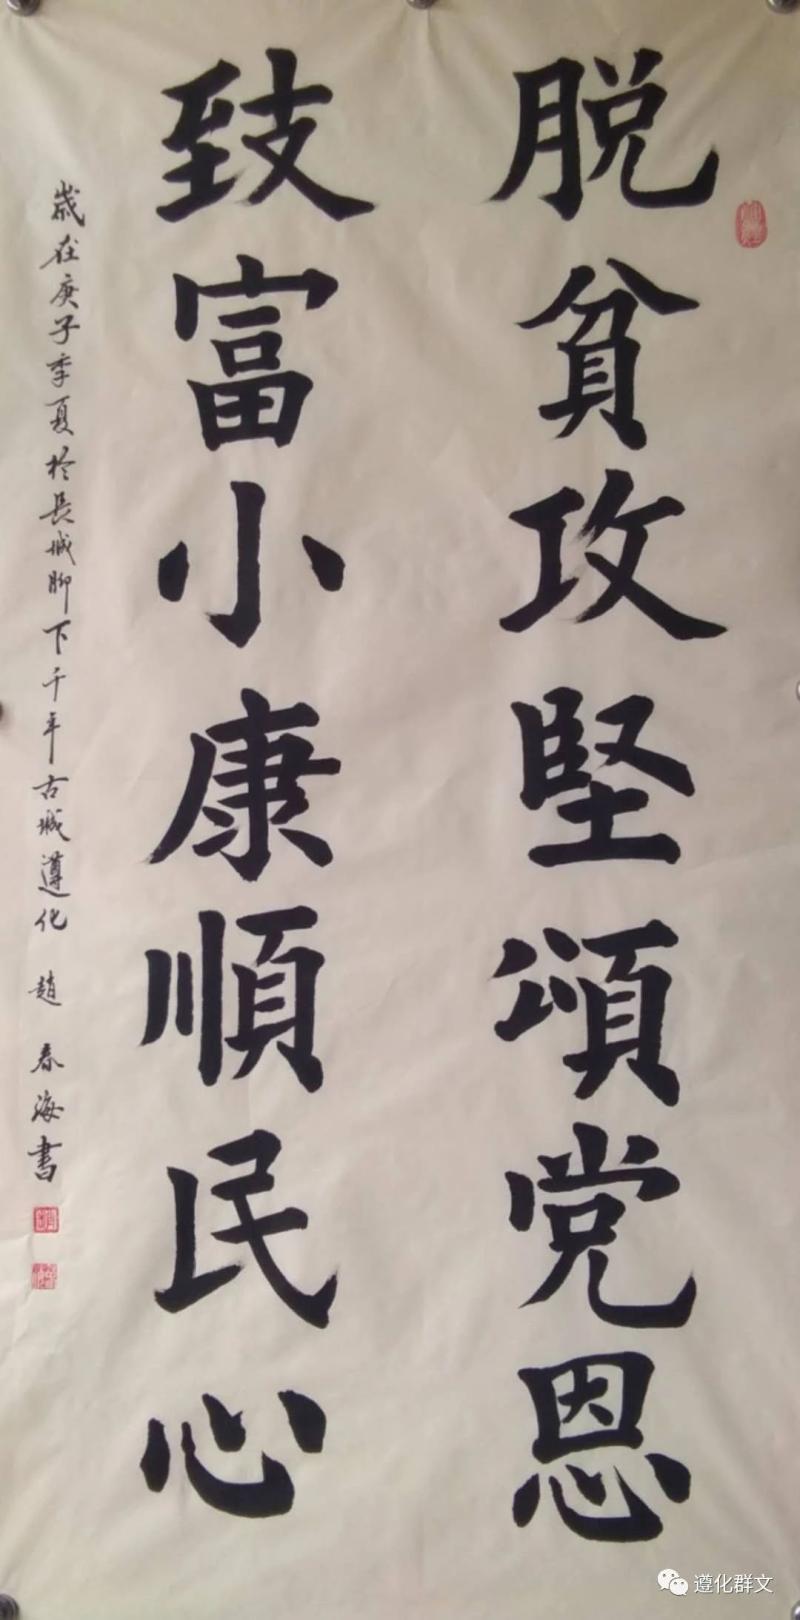 脱貧攻堅頌党恩
致富小康順民心
歲在庚子季夏於長城脚下千年古城遵化 趙春海書
遵化群文